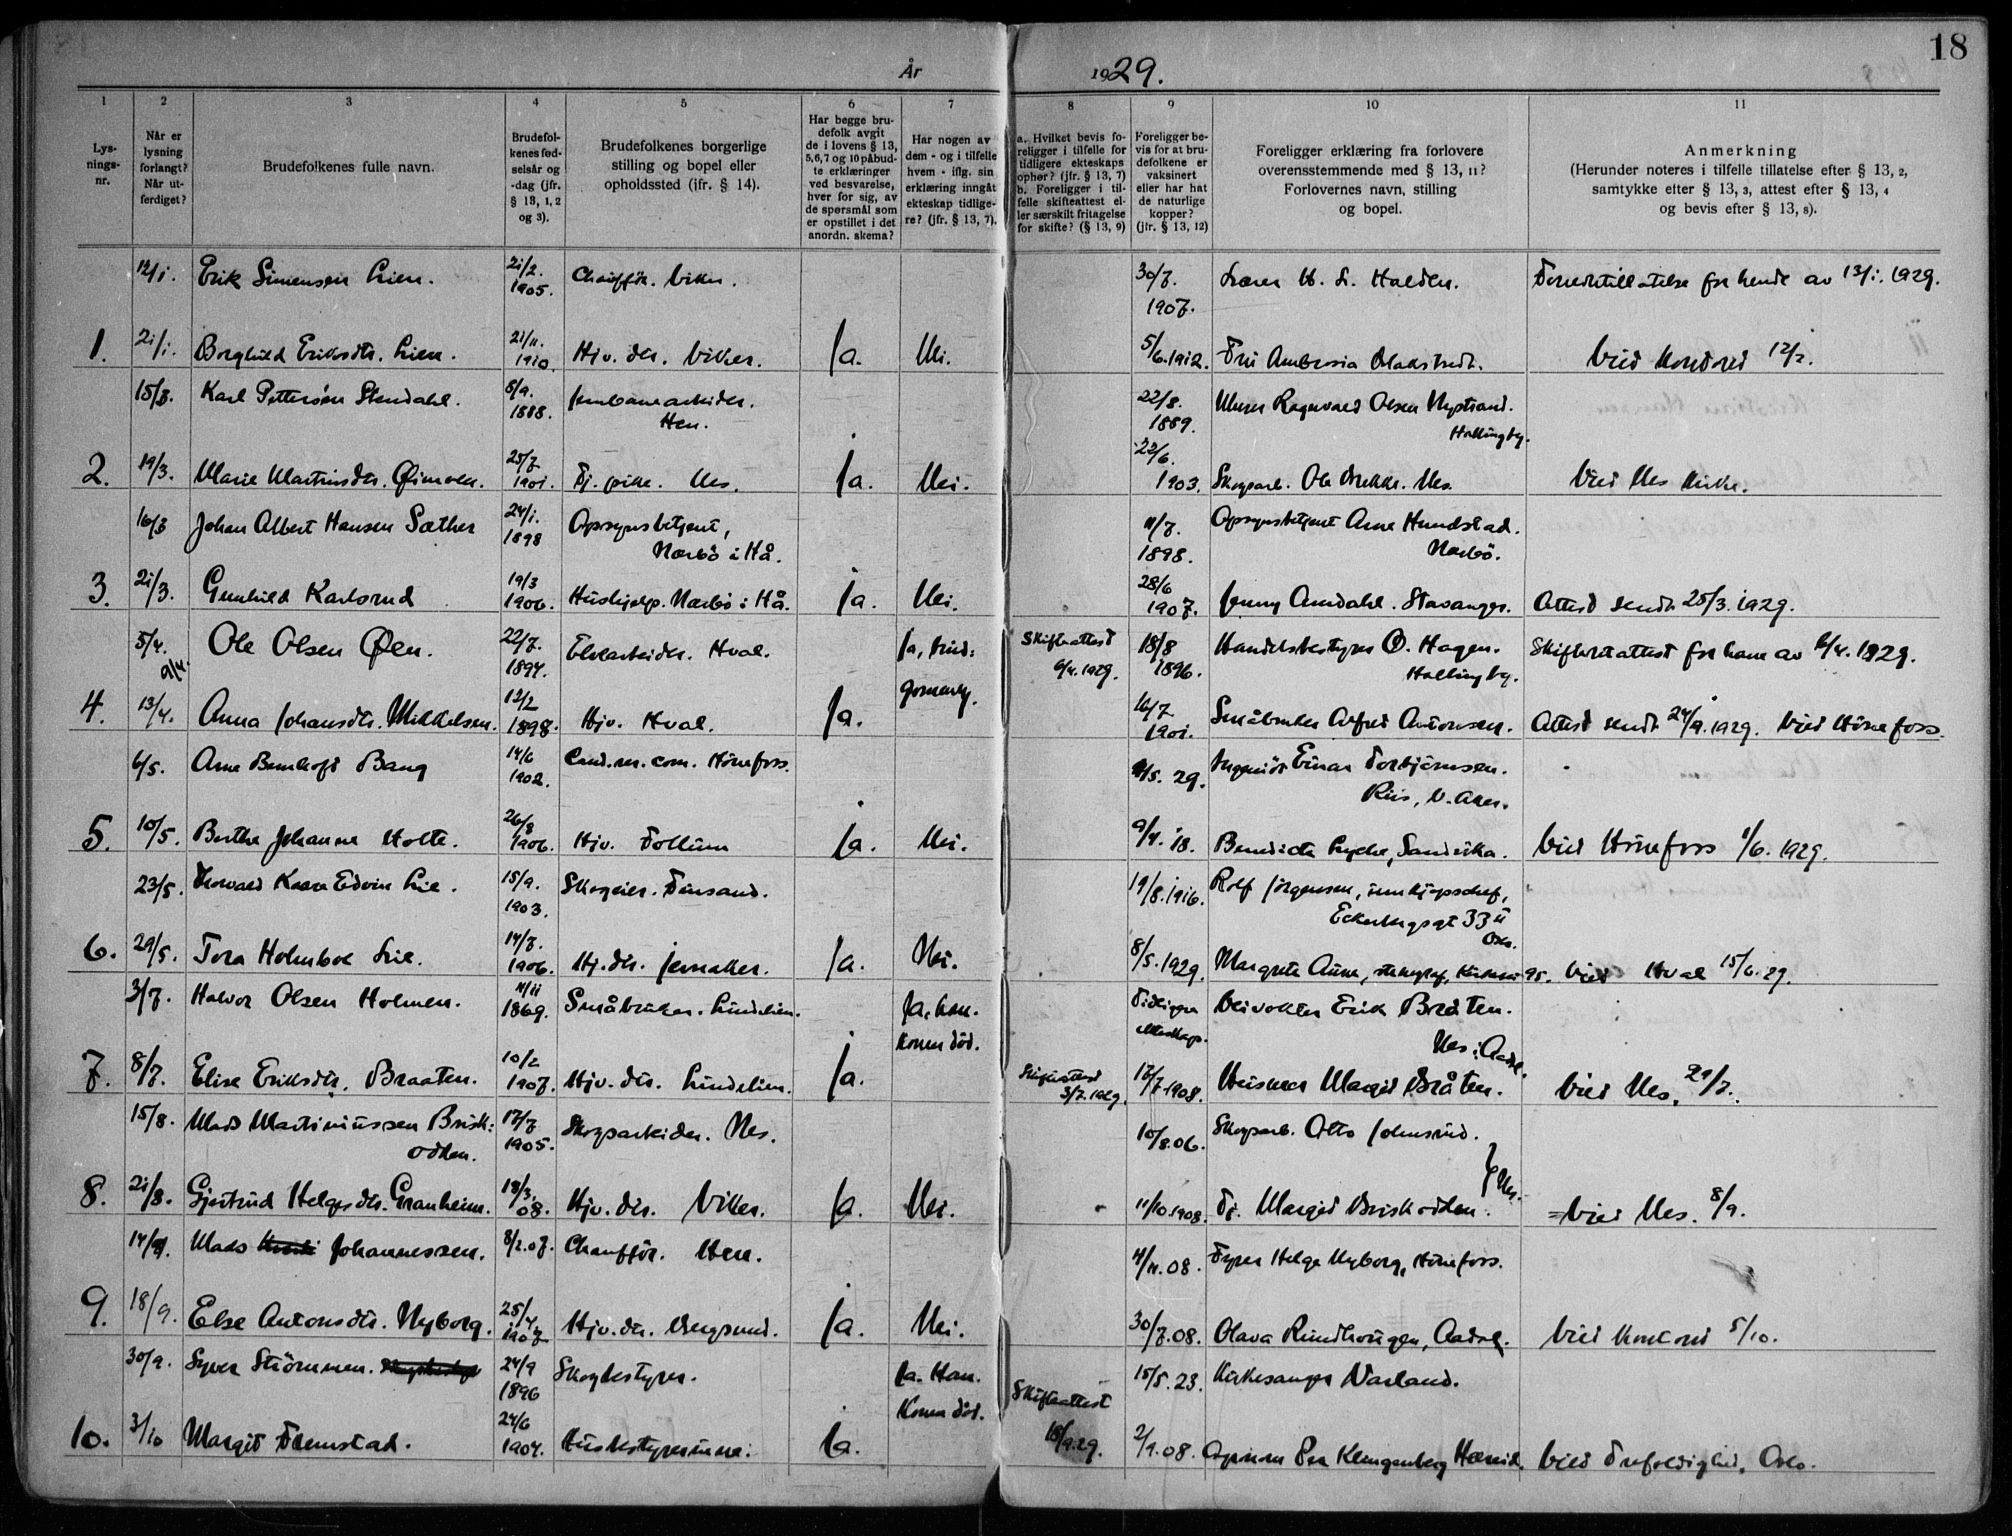 18
År 1929.
1 2 3 4 5 6 7 8 9 10 11
Lys-
nings-
nr.
Når er
lysning
forlangt?
Når ut-
ferdiget?
Brudefolkenes fulle navn.
Brudefol-
kenes fød-
selsår og
-dag (jfr.
§ 13, 1, 2
og 3).
Brudefolkenes borgerlige
stilling og bopel eller
opholdssted (jfr. § 14).
Har begge bru-
defolk avgit
de i lovens § 13,
5,6,7 og 10 påbud-
te erklæringer
ved besvarelse,
hver for sig, av
de spørsmål som
er opstillet i det
anordn. skema?
Har nogen av
dem - og i tilfelle
hvem - iflg. sin
erklæring inngåt
ekteskap tidlige-
re? (jfr. § 13, 7).
a. Hvilket bevis fo-
religger i tilfelle for
tidligere ekteskaps
ophør? (jfr. § 13, 7)
b. Foreligger i til-
felle skifteattest el-
ler særskilt fritagelse
for skifte? (§ 13, 9)
Foreligger be-
vis for at bru-
defolkene er
vaksinert
eller har hat
de naturlige
kopper?
(jfr. § 13, 12)
Foreligger erklæring fra forlovere
overensstemmende med § 13, 11?
Forlovernes navn, stilling
og bopel.
Anmerkning
(Herunder noteres i tilfelle tillatelse efter § 13, 2,
samtykke efter § 13, 3, attest efter § 13, 4
og bevis efter § 13, 8).
12/1 Erik Simensen Lien. 21/2. 1905. Chauffør. Viker. 30/7. 1907. Lærer H. L. Halden. for hende av 13/1. 1929.
1. 21/1. Borghild Eriksdtr. Lien. 21/11. 1910. Hjv. dtr. Viker. Ja. Nei. 5/6.1912. Fru Ambrosia Viet 12/2.
15/3. Karl Pettersen Stendahl. 8/9. 1888. Jernbanearbeider. Hen. 22/8. 1889. Ragnvald Olsen Nystrand. Hallingby.
2. 19/3. Marie Martinsdtr. Øimoen. 25/7 1901. Tj. pike. Nes. Ja. Nei. 22/6. 1903. Skogarb. Ole Nes. Viet Nes kirke.
16/3 Johan Albert Hansen Sæther 24/1. 1898 Opsynsbetjent, Nærbø i Hå. 11/7. 1898. Opsynsbetjent Arne Hundstad. Nærbø.
3. 21/3. Gunhild Karlsrud 19/3 1906. Hushjelp. Nærbø i Hå. Ja. Nei. 28/6 1907. Jenny Amdahl. Stavanger. Attest sendt 25/3. 1929.
5/4. 9/4. Ole Olsen Øen. 22/7. 1894. Elvearbeider. Hval. Ja, brud: Skifteattest 6/4.1929. 18/8 1896. Handelsbestyrer O. Hagen. Hallingby. Skifteretattest for ham av 6/4. 1929.
4. 13/4. Anna Johansdtr. Mikkelsen. 12/2 1898. Hjv. Hval. Ja. gommen. 16/7 1901. Småbruker Alfred Antonsen. Attest sendt 24/9.1929. Viet Hönefoss.
6/5. Arne Bang 14/6 1902. Cand. m. com. Hönefoss. 4/5. 29. Ingeniör Einar Torbjörnsen. Riis, V. Aker.
5. 10/5. Berthe Johanne Holte. 26/8 1906. Hjv. Follum Ja. Nei. 9/4. 18. Benedicte Lyche, Sandvika. Viet Hönefoss 1/6. 1929.
23/5. Thorvald Kaare Edvin Lie. 15/9. 1903. Skogeier. Finsand. 19/8.1916. Rolf Jörgensen, innkjøpschef, Eckersbergsgt 33 II Oslo.
6. 29/5. Tora Holmboe Lie. 14/7. 1906. Hj. dtr. Jevnaker. Ja. Nei. 8/5.1929. Margrete Aune, 95. Viet Hval 15/6. 29.
3/7. Halvor Olsen Holmen. 4/11 1869. Småbruker. Lindelien. Ja, han. Tidligere ekteskap. Veivokter Erik Bråten. Nes i Aadal.
7. 8/7. Elise Eriksdtr. Braaten. 10/2 1907. Hjv. dtr. Lindelien. Ja. Konen död. Skifteattest 3/7. 1929. 17/7 1908. Husmor Margit Bråten. Viet Nes. 29/7.
15/8. Mads Martiniussen Brisk: odden. 17/7 1905. Skogsarbeider. Nes. 10/8.06. Skogsarb. Otto Johnsrud. } Nes.
8. 21/8. Gjertrud Helgesdtr. Granheim. 18/3. 08. Hjv. dtr. Viker. Ja. Nei. 11/10.1908. Tj. Margit Briskodden. Viet Nes. 8/9.
14/9. Mads Johannessen. 8/2.07. Chauffør. Hen. 4/11. 08. Helge Nyborg, Hönefoss.
9. 18/9. Else Antonsdtr. Nyborg. 25/4 1907 Hjv. dtr. Bergsund. Ja. Nei. 30/7.08. Olava Rundhougen, Aadal. Viet 5/10.
30/9. Syver Strömmen. 24/9 1896 Skogbestyrer. Ja. Han. Skifteattest 18/9.29. 15/5. 23. Kirkesanger Narland.
10. 3/10 Margit Flemstad. 24/6 1904. Husbestyrerinne. Ja. Konen död. 2/9.08. Per Klingenberg Viet Trefoldighet, Oslo.